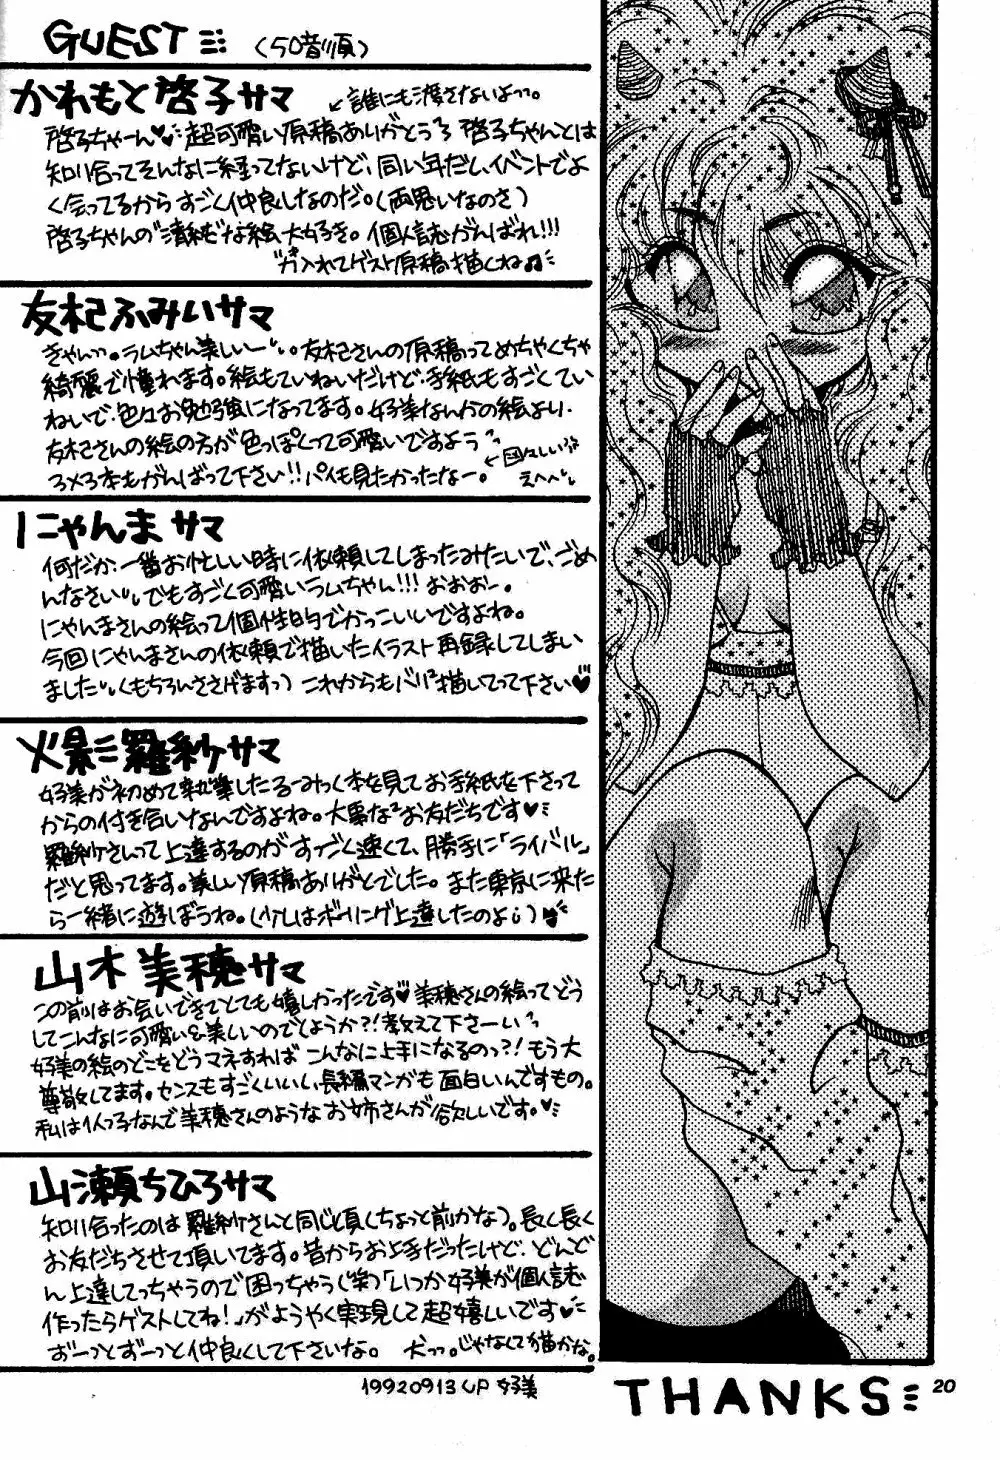 GUEST (50音順)
かわもと啓子サマ ←誰にも渡さないよっ。
啓子ちゃーん♥超可愛い原稿ありがとう 啓子ちゃんとは
知り合ってそんなに経ってないけど、同い年だし、イベントでよ
く会ってるからすごく仲良しなのだ。(両思いなのさ)
啓子ちゃんの"清純"な絵大好き。個人誌がんばれ!!!
気が入れてゲスト原稿描くね♫
友杞ふみいサマ
きゃんっ。ラムちゃん美しいー。友杞さんの原稿ってめちゃくちゃ
綺麗で憧れます。絵もていねいだけど、手紙もすごくてい
ねいで、色々お勉強になってます。好美なんかの絵より、
友杞さんの絵の方が色っぽくって可愛いですよう
らメろ本もがんばって下さい!!パイも見たかったなー。
えへへ
にゃんまサマ
何だか、一番お忙しい時に依頼してしまったみたいで、ごめ
んなさい、でもすごく可愛いラムちゃん!!!おおおー。
にゃんまさんの絵って個性的でかっこいいですよね。
今回にゃんまさんの依頼で描いたイラスト再録してしまい
ました(もちろんささげますっ)これからもバリバリ描いてって下さい♥
火影羅紗サマ
好美が初めて執筆したるーみっく本を見てお手紙を下さって
からの付き合いなんですよね。大事なお友だちです♥
羅紗さんって上達するのがすっごく速くて、勝手に「ライバル」
だと思ってます。美しい原稿ありがとでした。また東京に来た
ら一緒に遊ぼうね。(少しはボーリング上達したのよ)
山木美穂サマ
この前はお会いできてとても嬉しかったです♥美穂さんの絵ってどう
してこんなに可愛い&美しいのでしょうか?!教えて下さーい
好美の絵のどこをどうマネすればこんなに上手になるのっ?!もう大
尊敬してます。センスもすごくいいし、長編マンガも面白いんですもの。
私は1人っ子なんで美穂さんのようなお姉さんが欲しいです。♥
山瀬ちひろサマ
知り合ったのは羅紗さんと同じ頃(ちょっと前かな)。長く長く
お友だちさせて頂いてます。昔からお上手だったけど、どんど
ん上達してっちゃうので困っちゃう(笑)「いつか好美が個人誌
作ったらゲストしてね!」がようやく実現して超嬉しいです♥
ずーっとずーっと仲良くして下さいな。 犬っ。じゃなくて猫かな。
19920913 UP 好美
THANKS
20